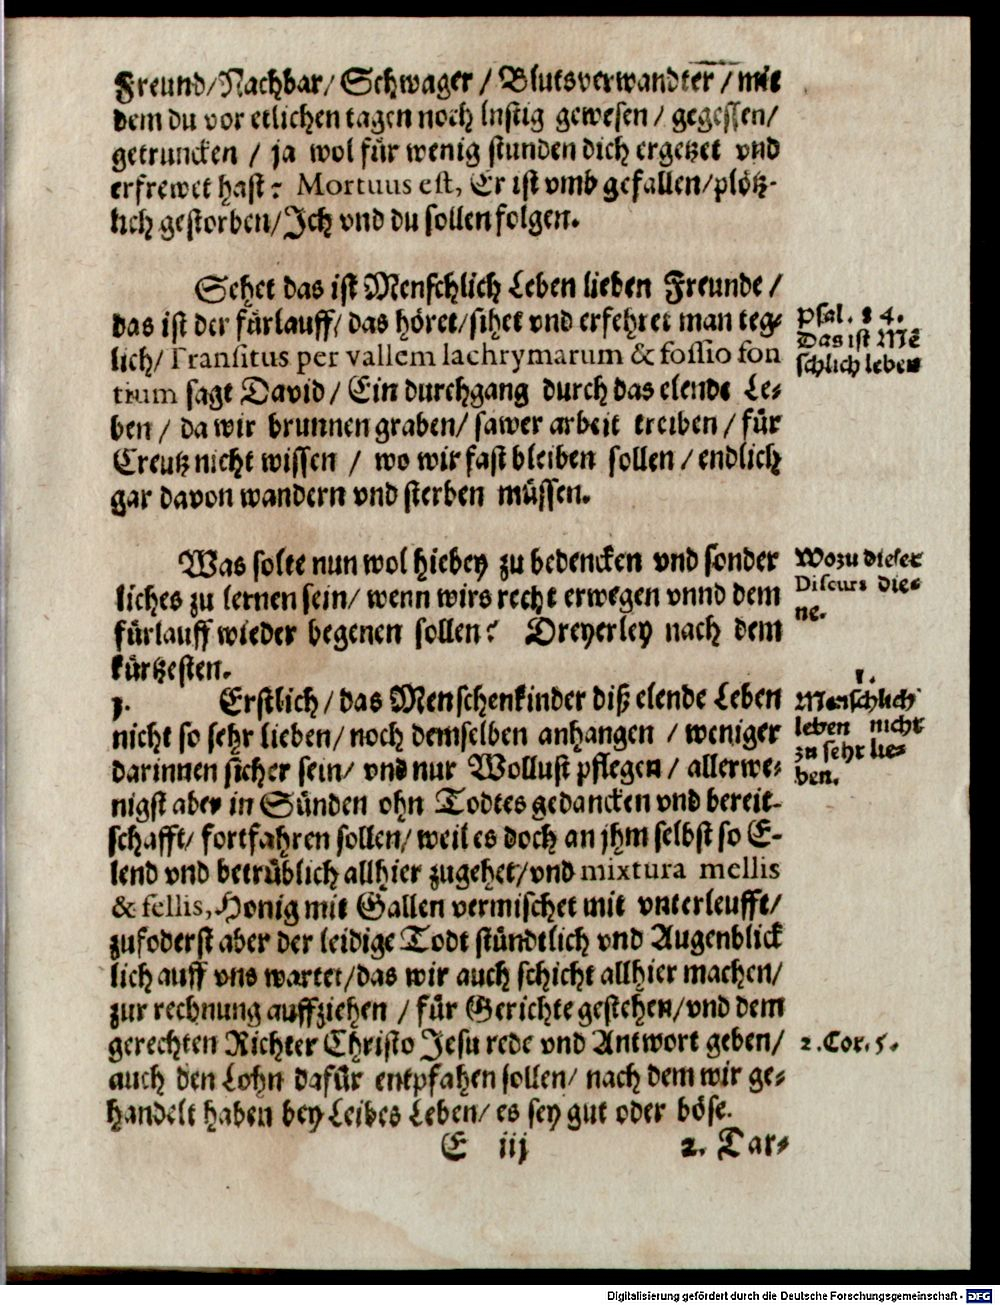 Freund/Nachbar/ Schwager / Blutsverwandter / mit
dem du vor etlichen tagen noch lustig gewesen / gegessen/
getruncken / ja wol für wenig stunden dich ergetzet vnd
erfrewet hast? Mortuus est, Er ist vmb gefallen/plötz-
lich gestorben/Jch vnd du sollen folgen.
Sehet das ist Menschlich Leben lieben Freunde /
das ist der fürlauff/ das höret/sihet vnd erfehret man teg-
lich/ Transitus per vallem lachrymarum & fossio fon
tium sagt David / Ein durchgang durch das elende Le-
ben / da wir brunnen graben/ sawer arbeit treiben / für
Creutz nicht wissen / wo wir fast bleiben sollen / endlich
gar davon wandern vnd sterben müssen.
Psal. 84.
Das ist Mē
schlich leben
Was solte nun wol hiebey zu bedencken vnd sonder
liches zu lernen sein/ wenn wirs recht erwegen vnnd dem
fürlauff wieder begenen sollen? Dreyerley nach dem
kürtzesten.
Wozu dieser
Discurs die-
ne.
1. Erstlich / das Menschenkinder diß elende Leben
nicht so sehr lieben/ noch demselben anhangen / weniger
darinnen sicher sein/ vnd nur Wollust pflegen / allerwe-
nigst aber in Sünden ohn Todtes gedancken vnd bereit-
schafft/ fortfahren sollen/ weil es doch an jhm selbst so E-
lend vnd betrüblich allhier zugehet/vnd mixtura mellis
& fellis, Honig mit Gallen vermischet mit vnterleufft/
zufoderst aber der leidige Todt stündtlich vnd Augenblick
lich auff vns wartet/das wir auch schicht allhier machen/
zur rechnung auffziehen / für Gerichte gestehen/vnd dem
gerechten Richter Christo Jesu rede vnd Antwort geben/
auch den Lohn dafür entpfahen sollen/ nach dem wir ge-
handelt haben bey Leibes Leben/ es sey gut oder böse.
1.
Menschlich
leben nicht
zu sehr lie-
ben.
2. Cor. 5.
E iij 2. Dar-
Digitalisierung gefördert durch die Deutsche Forschungsgemeinschaft - DFG